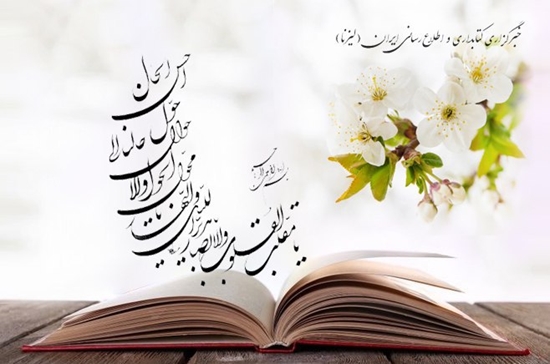 خبرگزاری کتابداری و اطلاع رسانی ایران (لیزنا)
یا مقلب القلوب و الابصار
یا مدبر اللیل و النهار
یا محول الحول و الاحوال
حول حالنا الی
احسن الحال